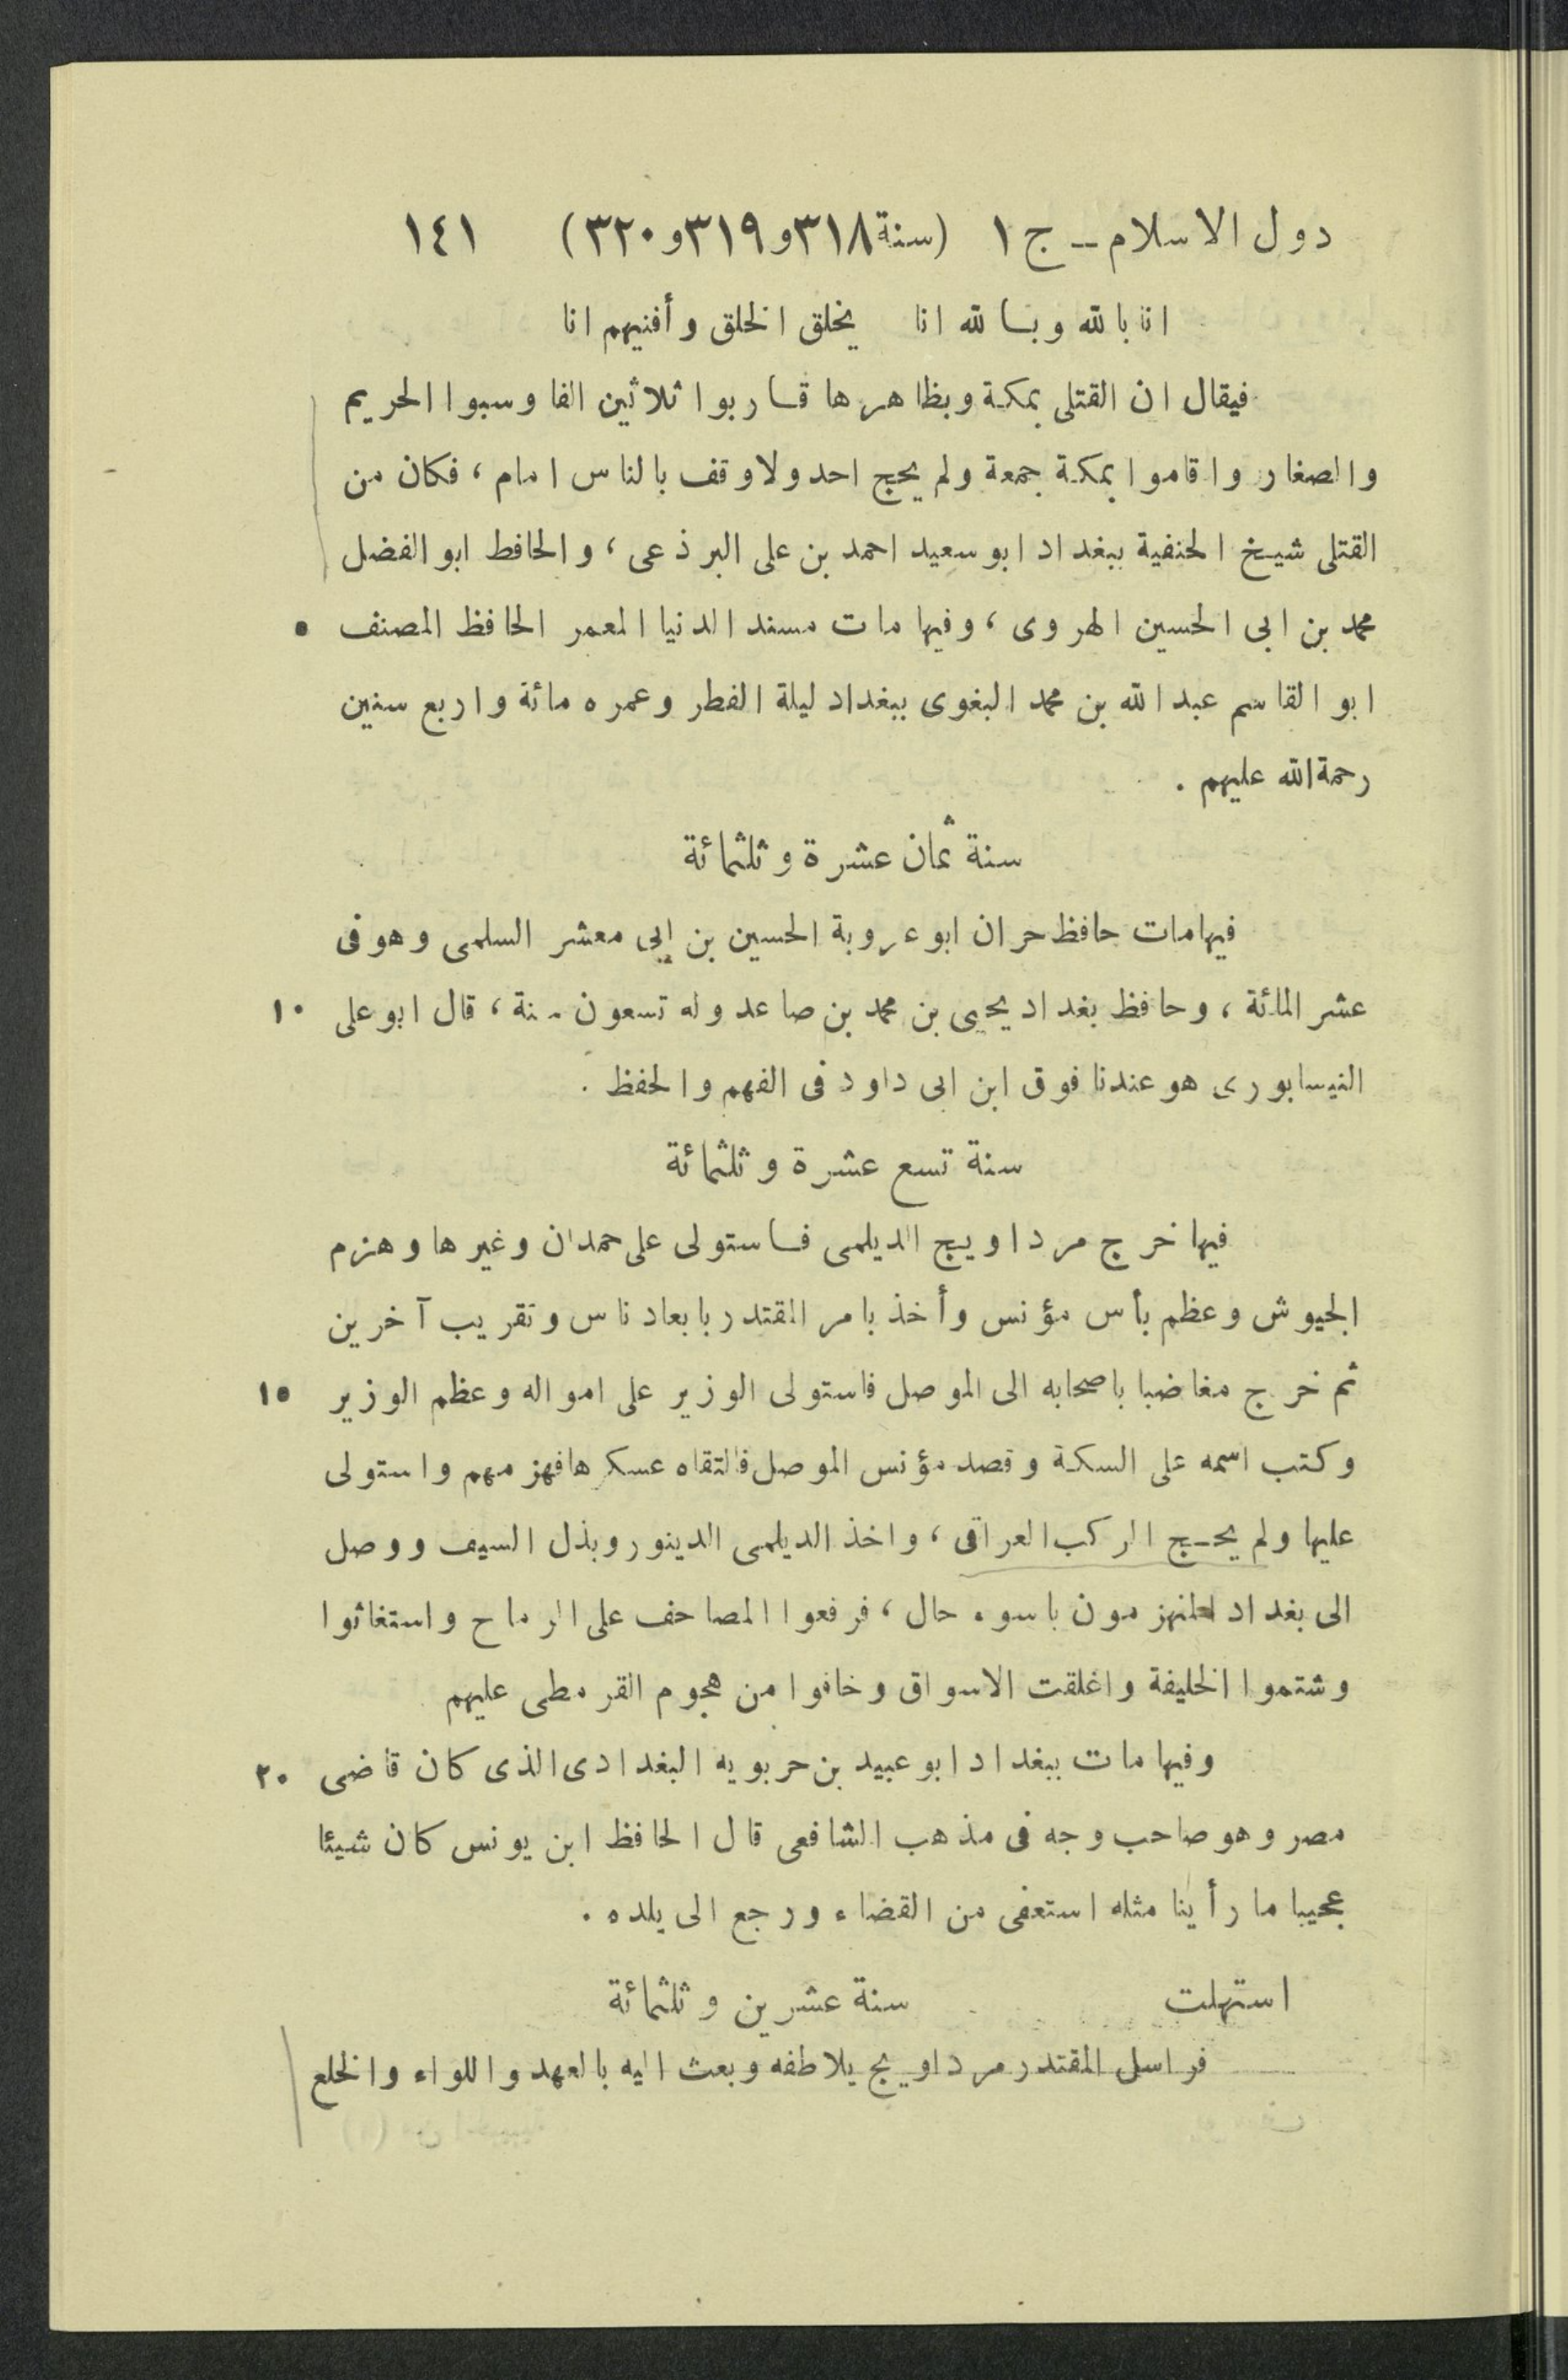 دول الاسلام ــ ج ١ (سنة ٣١٨ و٣١٩ و٣٢٠) ١٤١
انا بالله وبالله انا يخلق الخلق وأفنيهم انا
فيقال ان القتلى بمكة وبظاهرها قاربوا ثلاثين الفا وسبوا الحريم
والصغار واقاموا بمكة جمعة ولم يحج احد ولا وقف بالناس امام ، فكان من
القتلى شيخ الحنفية ببغداد ابو سعيد احمد بن على البرذعى ، والحافط ابو الفضل
محمد بن ابى الحسين الهروى ، وفيها مات مسند الدنيا المعمر الحافظ المصنف ٥
ابو القاسم عبد الله بن محمد البغوى ببغداد ليلة الفطر وعمره مائة واربع سنين
رحمة الله عليهم .
سنة ثمان عشرة وثلثمائة
فيها مات حافظ حران ابو عروبة الحسين بن ابى معشر السلمى وهو فى
عشر المائة ، وحافظ بغداد يحيى بن محمد بن صاعد وله تسعون سنة ، قال ابو على ١٠
النيسابورى هو عندنا فوق ابن ابى داود فى الفهم والحفظ .
سنة تسع عشرة وثلثمائة
فيها خرج مرداويج الديلمى فاستولى على حمدان وغيرها وهزم
الجيوش وعظم بأس مؤنس وأخذ بامر المقتدر بابعاد ناس وتقريب آخرين
ثم خرج مغاضبا باصحابه الى الموصل فاستولى الوزير على امواله وعظم الوزير ١٥
وكتب اسمه على السكة وقصد مؤنس الموصل فالتقاه عسكرها فهزمهم واستولى
عليها ولم يحج الركب العراقى ، واخذ الديلمى الدينور وبذل السيف ووصل
الى بغداد المنهزمون باسوء حال ، فرفعوا المصاحف على الرماح واستغاثوا
وشتموا الخليفة واغلقت الاسواق وخافوا من هجوم القرمطى عليهم
وفيها مات ببغداد ابو عبيد بن حربويه البغدادى الذى كان قاضى ٢٠
مصر وهو صاحب وجه فى مذهب الشافعى قال الحافظ ابن يونس كان شيئا
عجيبا ما رأينا مثله استعفى من القضاء ورجع الى بلده .
استهلت سنة عشرين وثلثمائة
فراسل المقتدر مرداويج يلاطفه وبعث اليه بالعهد واللواء والخلع